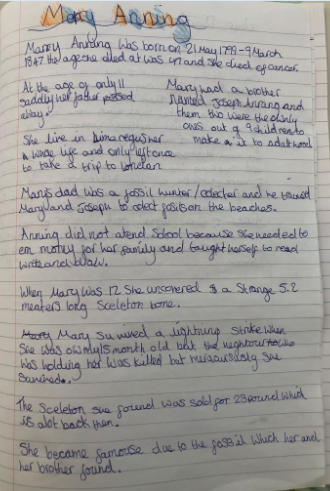 Mary Anning
Marry Anning was born on 21 May 1799-9 March
1847 the age she died at was 47 and she died of cancer.
At the age of only 11
saddly her father passed
away.
Mary had a brother
named Joseph Anning and
them two were the only
ones out of 9 children to
make it to adulthood
She live in Lima regus her
whole life and only left once
to take a trip to London
Marys dad was a fossil hunter / colecter and he
Mary and Joseph to colect fossils on the beaches.
Anning did not atend School because she needed to
ern money for her family and taught herself to read
write and draw.
When Mary was 12 She uncovered a Strange 5.2
meaters long Sceleton bone.
Mary Mary Survived a lightning Strike when
She was only 15 month old but the neghbour who
was holding her was killed but miraculously She
Survived.
The Sceleton she found was sold for 23 pound which
is alot back then.
She became famouse due to the fossil which her and
her brother found.